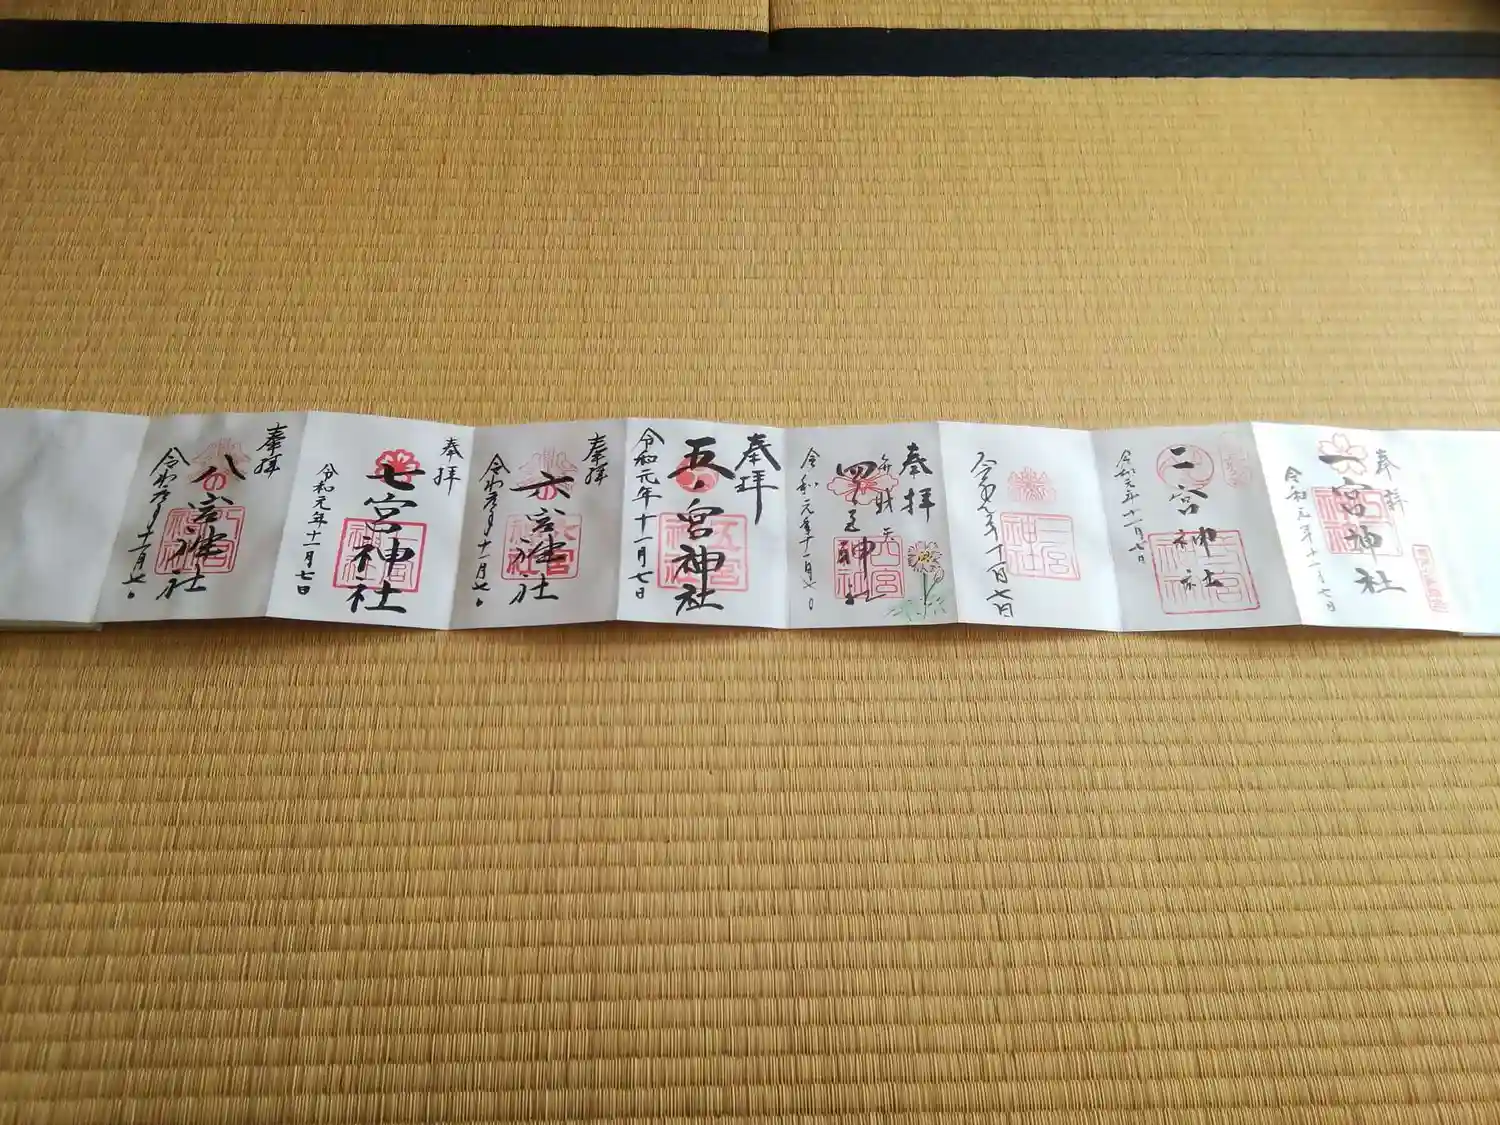 奉拝
一宮神社
令和元年十一月七日
二宮神社
令和元年十一月七日
三宮神社
令和元年十一月七日
奉拝
弁財天
四宮神社
令和元年十一月七日
奉拝
五ノ宮神社
五宮神社
令和元年十一月七日
奉拝
六宮神社
令和元年十一月七日
奉拝
七宮神社
令和元年十一月七日
奉拝
八宮神社
令和元年十一月七日